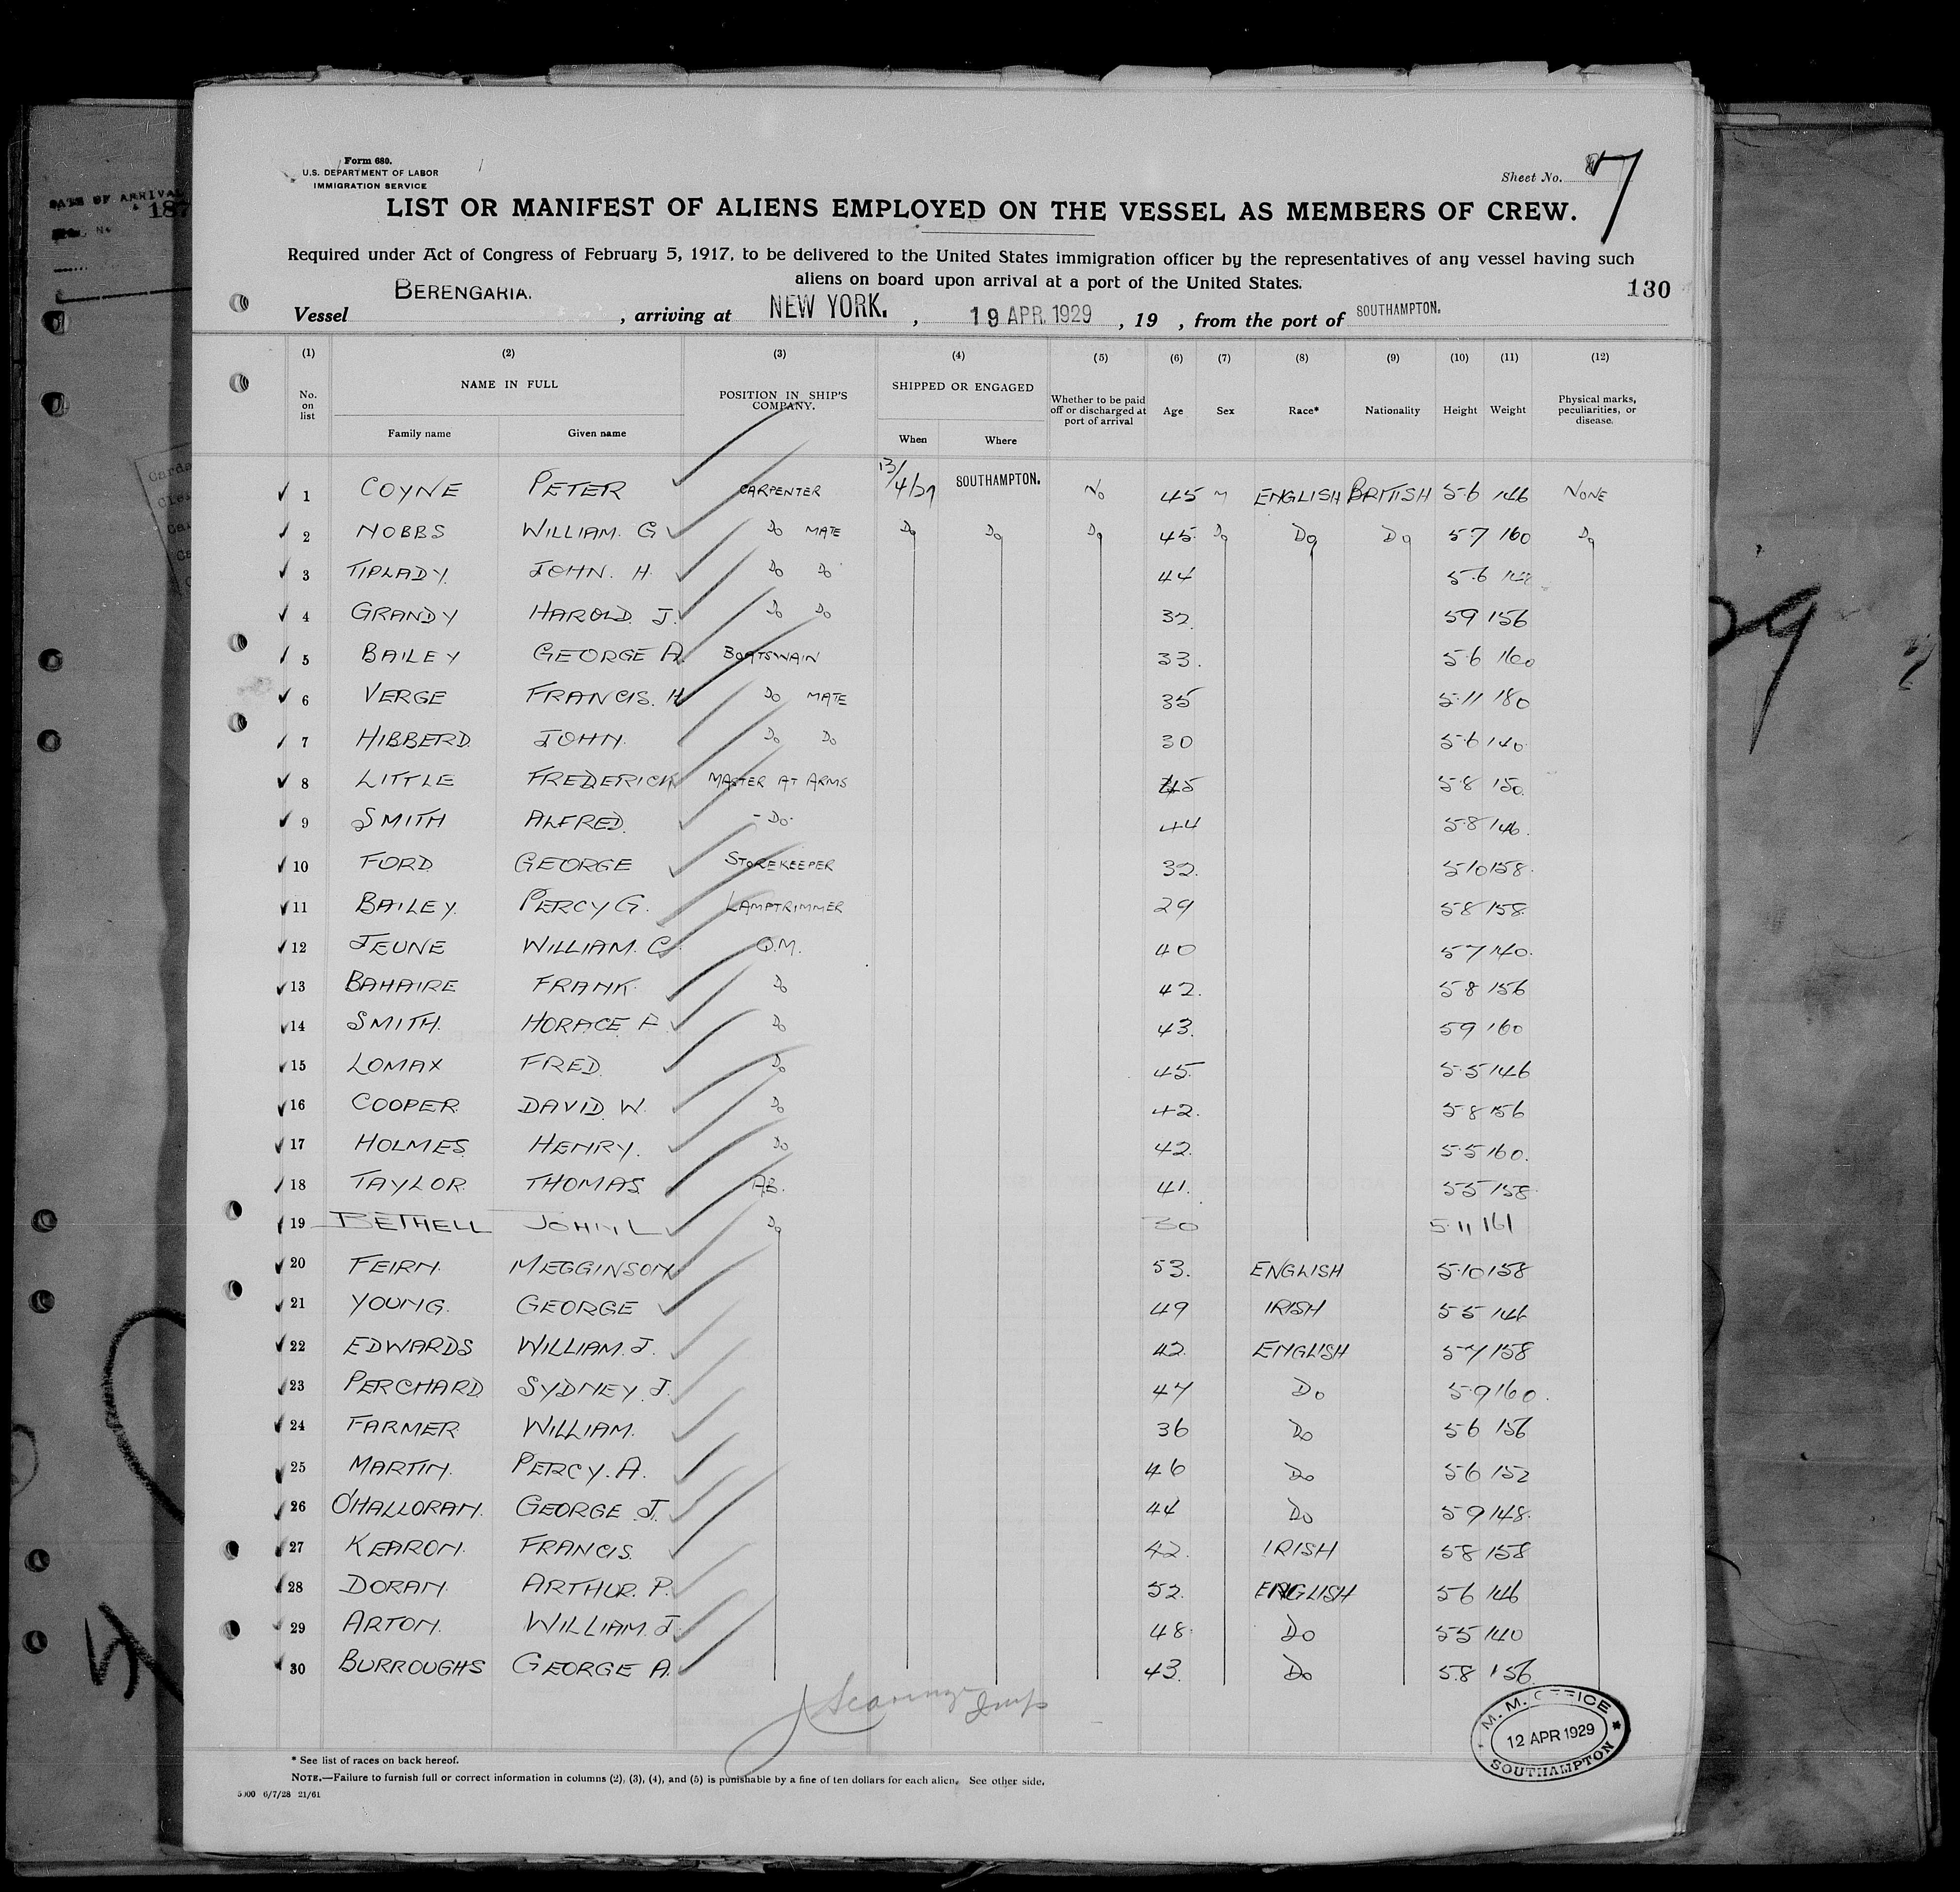 DATE OF ARRIVAL
187
Form 680.
U.S. DEPARTMENT OF LABOR
IMMIGRATION SERVICE
Sheet No. 7
LIST OR MANIFEST OF ALIENS EMPLOYED ON THE VESSEL AS MEMBERS OF CREW.
Required under Act of Congress of February 5, 1917, to be delivered to the United States immigration officer by the representatives of any vessel having such
aliens on board upon arrival at a port of the United States.
130
Vessel BERENGARIA. , arriving at NEW YORK. , 19 APR 1929 , 19 , from the port of SOUTHAMPTON.
(1) (2) (3) (4) (5) (6) (7) (8) (9) (10) (11) (12)
No. on list NAME IN FULL POSITION IN SHIP'S COMPANY. SHIPPED OR ENGAGED Whether to be paid off or discharged at port of arrival Age Sex Race* Nationality Height Weight Physical marks, peculiarities, or disease.
Family name Given name When Where
1 COYNE PETER CARPENTER 13/4/29 SOUTHAMPTON. No 45 M ENGLISH BRITISH 5.6 146 NONE
2 NOBBS WILLIAM. G Do MATE Do Do Do 45. Do Do Do 5.7 160 Do
3 TIPLADY. JOHN. H. Do Do 44 5.6
4 GRANDY HAROLD. J. Do Do 32. 59 156
5 BAILEY GEORGE A. BOATSWAIN 33. 5.6 160
6 VERGE FRANCIS. H Do MATE 35 5.11 180
7 HIBBERD. JOHN. Do Do 30 5.6 140.
8 LITTLE FREDERICK MASTER AT ARMS 45 5.8 150.
9 SMITH ALFRED. -Do- 44 5.8 146.
10 FORD. GEORGE STOREKEEPER 32. 5.10 158.
11 BAILEY. PERCY G. LAMPTRIMMER 29 5.8 158.
12 JEUNE WILLIAM. C. Q.M. 40 5.7 140.
13 BAHAIRE FRANK. Do 42. 5.8 156
14 SMITH. HORACE. F. Do 43. 59 160
15 LOMAX FRED. Do 45. 5.5 146
16 COOPER. DAVID. W. Do 42. 5.8 156
17 HOLMES. HENRY. Do 42. 5.5 160.
18 TAYLOR. THOMAS. A.B. 41. 55 158.
19 BETHELL JOHN L Do 30 5.11 161
20 FEIRN. MEGGINSON. 53. ENGLISH 5.10 158
21 YOUNG. GEORGE 49 IRISH 55 146
22 EDWARDS WILLIAM. J. 42. ENGLISH 57 158
23 PERCHARD. SYDNEY. J. 47 Do 5.9 160.
24 FARMER WILLIAM. 36 Do 56 156
25 MARTIN. PERCY. A. 46 Do 56 152
26 O'HALLORAN. GEORGE J. 44 Do 59 148.
27 KEARON. FRANCIS. 42. IRISH 58 158
28 DORAN. ARTHUR. P. 52. ENGLISH 56 146
29 ARTON. WILLIAM. J. 48. Do 55 140
30 BURROUGHS GEORGE A. 43. Do 5.8 156
M. M. OFFICE
12 APR 1929
SOUTHAMPTON
* See list of races on back hereof.
NOTE.—Failure to furnish full or correct information in columns (2), (3), (4), and (5) is punishable by a fine of ten dollars for each alien. See other side.
5000 6/7/28 21/61